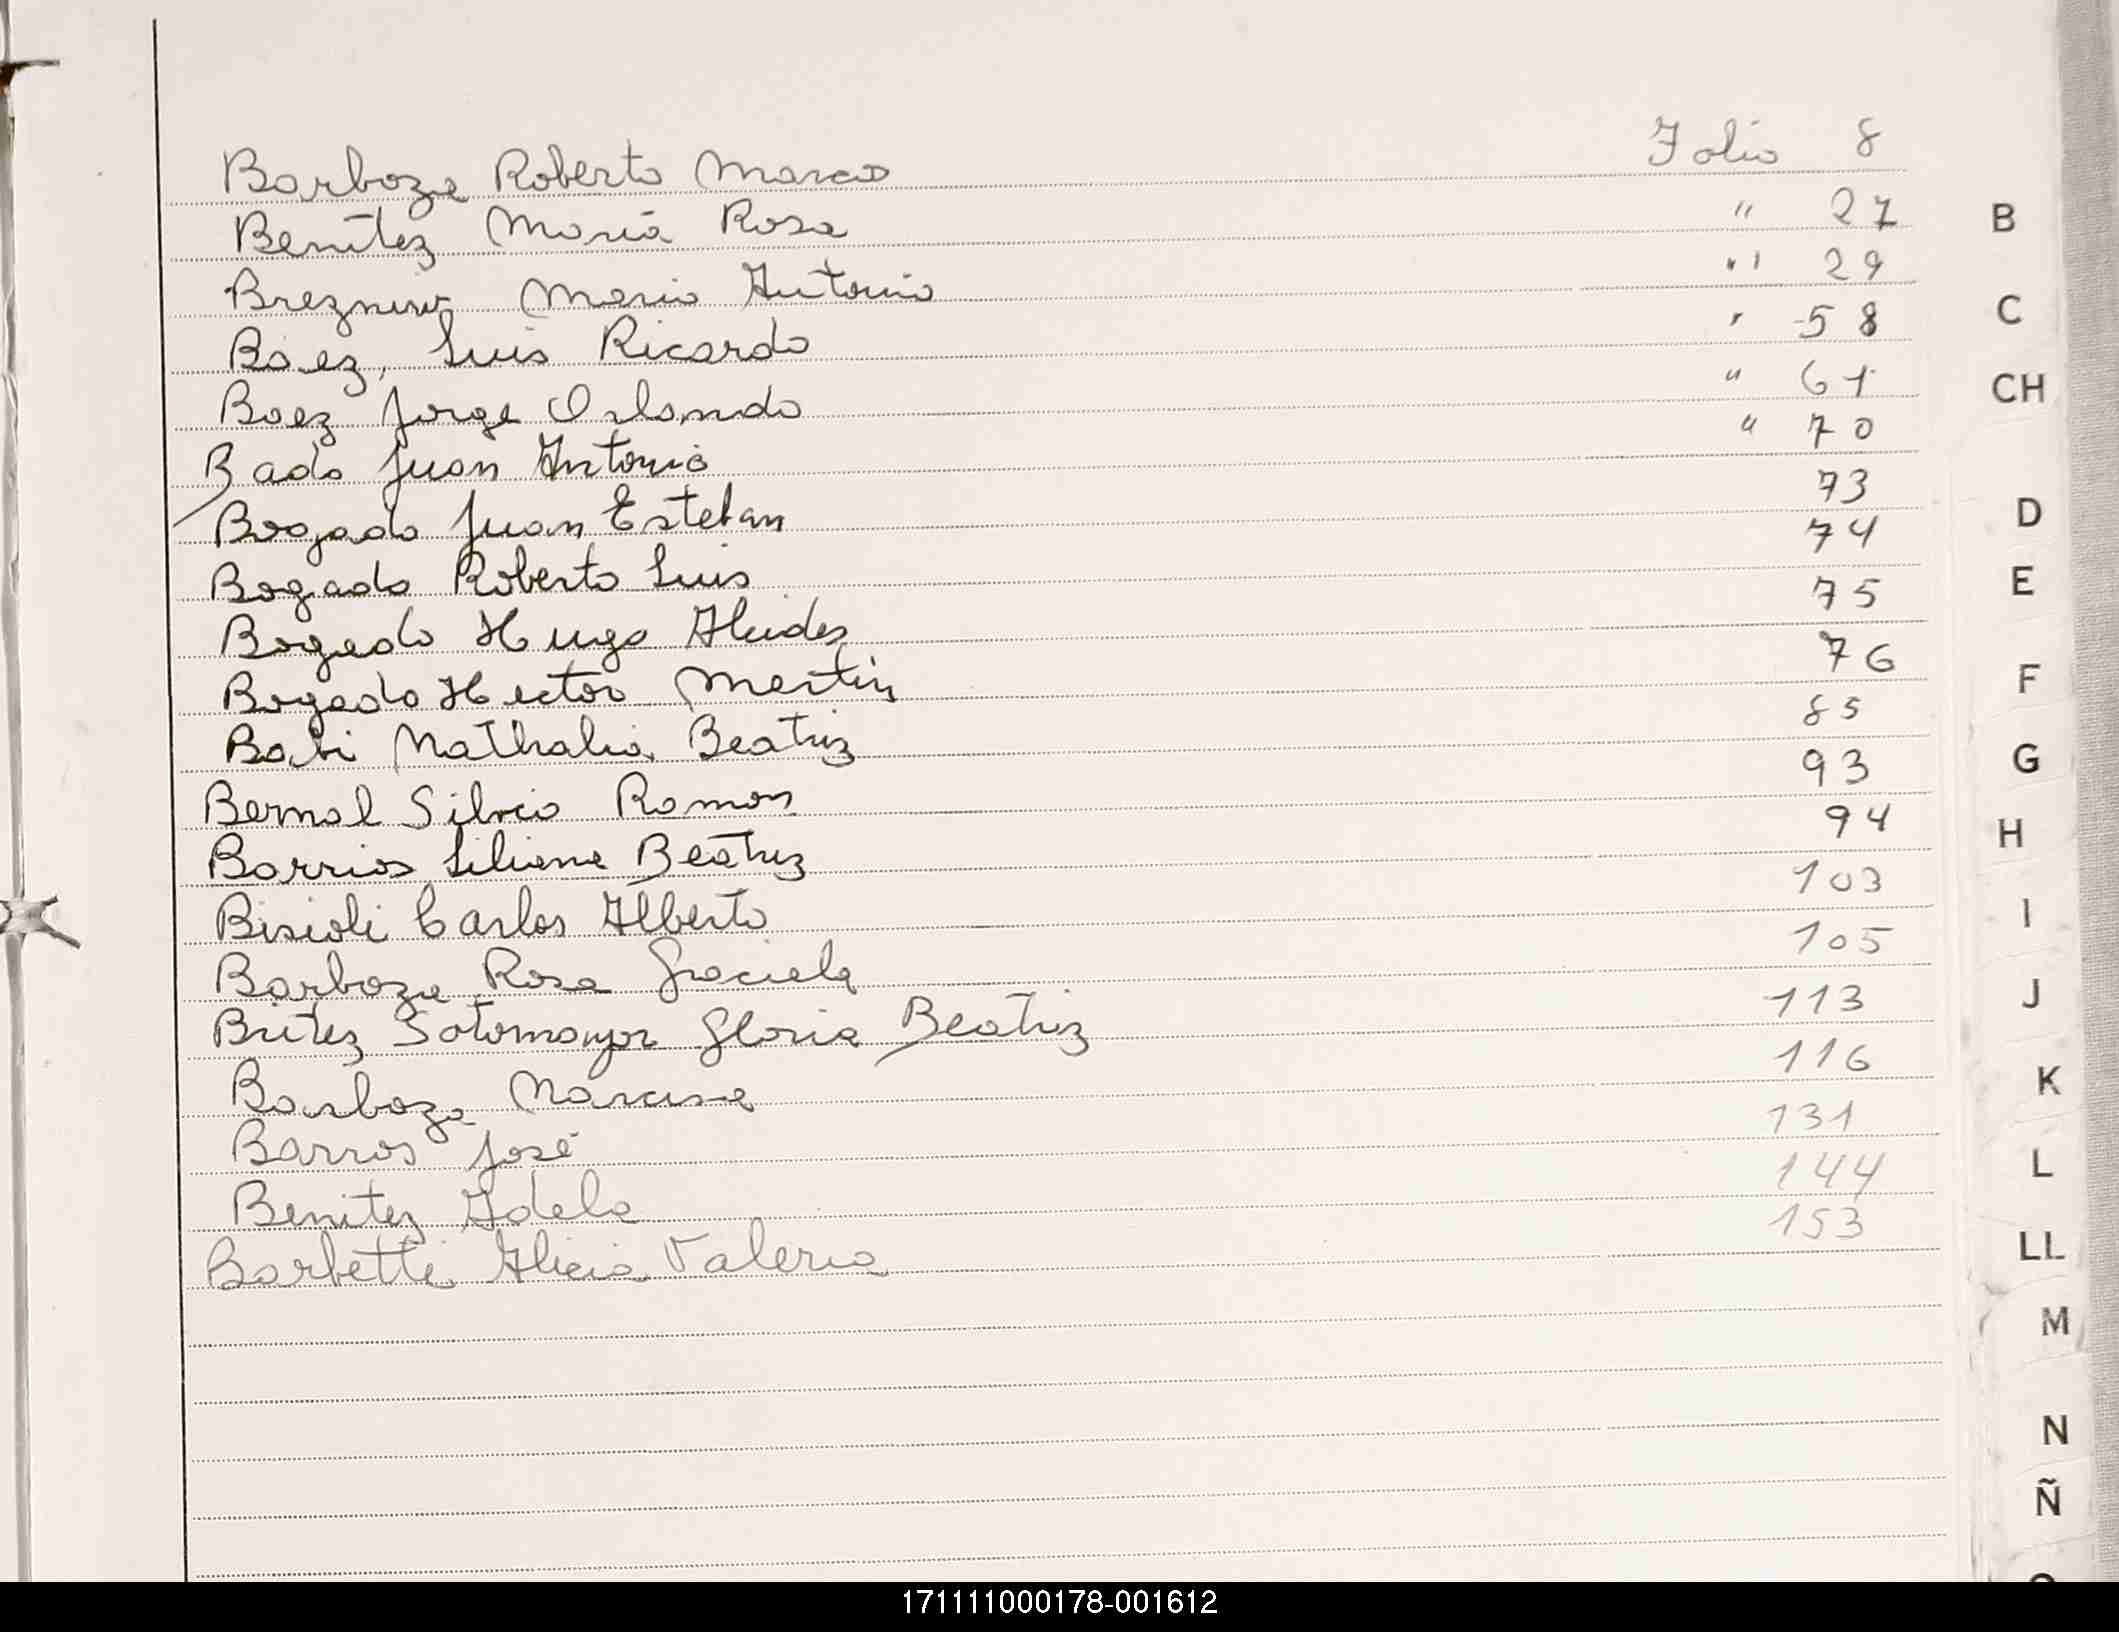 Barboza Roberto Marcos Folio 8
Benítez María Rosa " 27
Mario Antonio " 29
Baez, Luis Ricardo " 58
Baez Jorge Orlando " 61
Bado Juan Antonio " 70
Bogado Juan Esteban 73
Bogado Roberto Luis 74
Bogado Hugo Alcides 75
Bogado Hector Martin 76
Babi Nathalia Beatriz 85
Bernal Silvio Ramon 93
Barrios Liliana Beatriz 94
Bisioli Carlos Alberto 103
Barboza Rosa Graciela 105
Britez Sotomayor Gloria Beatriz 113
Barboza Narcisa 116
Barros José 131
Benitez Adela 144
Barbetti Alicia Valeria 153
B
C
CH
D
E
F
G
H
I
J
K
L
LL
M
N
Ñ
171111000178-001612